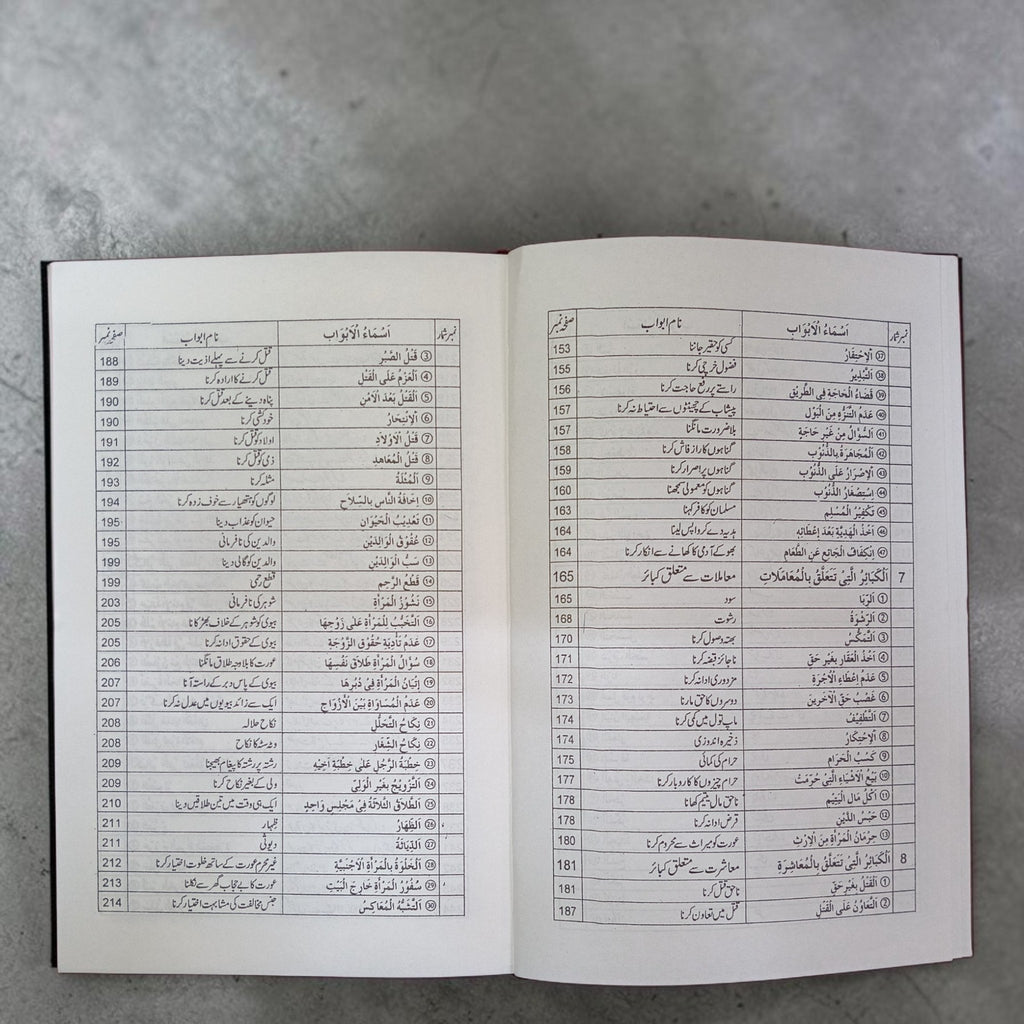 نمبر شمار اَسْمَاءُ الْاَبْوَاب نام ابواب صفحہ نمبر
㊲ اَلْاِحْتِقَارُ کسی کو حقیر جاننا 153
㊳ اَلتَّبْذِيْرُ فضول خرچی کرنا 155
㊴ قَضَاءُ الْحَاجَةِ فِى الطَّرِيْقِ راستے پر رفع حاجت کرنا 156
㊵ عَدَمُ التَّنَزُّهِ مِنَ الْبَوْلِ پیشاب کے چھینٹوں سے احتیاط نہ کرنا 157
㊶ اَلسُّؤَالُ مِنْ غَيْرِ حَاجَةٍ بلا ضرورت مانگنا 157
㊷ اَلْمُجَاهَرَةُ بِالذُّنُوْبِ گناہوں کا راز فاش کرنا 158
㊸ اَلْاِصْرَارُ عَلَى الذُّنُوْبِ گناہوں پر اصرار کرنا 159
㊹ اِسْتِصْغَارُ الذُّنُوْبِ گناہوں کو معمولی سمجھنا 160
㊺ تَكْفِيْرُ الْمُسْلِمِ مسلمان کو کافر کہنا 163
㊻ اَخْذُ الْهَدِيَّةِ بَعْدَ اِعْطَائِهِ ہدیہ دے کر واپس لینا 164
㊼ اِنْكِفَافُ الْجَائِعِ عَنِ الطَّعَامِ بھوکے آدمی کا کھانے سے انکار کرنا 164
7 اَلْكَبَائِرُ الَّتِىْ تَتَعَلَّقُ بِالْمُعَامَلَاتِ معاملات سے متعلق کبائر 165
① اَلرِّبَا سود 165
② اَلرِّشْوَةُ رشوت 168
③ اَلتَّمَكُّسُ بھتہ وصول کرنا 170
④ اَخْذُ الْعَقَارِ بِغَيْرِ حَقٍّ ناجائز قبضہ کرنا 171
⑤ عَدَمُ اِعْطَاءِ الْاُجْرَةِ مزدوری ادا نہ کرنا 172
⑥ غَصْبُ حَقِّ الْآخَرِيْنَ دوسروں کا حق مارنا 173
⑦ اَلتَّطْفِيْفُ ماپ تول میں کمی کرنا 174
⑧ اَلْاِحْتِكَارُ ذخیرہ اندوزی 174
⑨ كَسْبُ الْحَرَامِ حرام کی کمائی 175
⑩ بَيْعُ الْاَشْيَاءِ الَّتِىْ حُرِّمَتْ حرام چیزوں کا کاروبار کرنا 177
⑪ اَكْلُ مَالِ الْيَتِيْمِ ناحق مال یتیم کھانا 178
⑫ حَبْسُ الدَّيْنِ قرض ادا نہ کرنا 178
⑬ حِرْمَانُ الْمَرْأَةِ مِنَ الْاِرْثِ عورت کو میراث سے محروم کرنا 180
8 اَلْكَبَائِرُ الَّتِىْ تَتَعَلَّقُ بِالْمُعَاشِرَةِ معاشرت سے متعلق کبائر 181
① اَلْقَتْلُ بِغَيْرِ حَقٍّ ناحق قتل کرنا 181
② اَلتَّعَاوُنُ عَلَى الْقَتْلِ قتل میں تعاون کرنا 187
نمبر شمار اَسْمَاءُ الْاَبْوَاب نام ابواب صفحہ نمبر
③ قَتْلُ الصَّبْرِ قتل کرنے سے پہلے اذیت دینا 188
④ اَلْعَزْمُ عَلَى الْقَتْلِ قتل کرنے کا ارادہ کرنا 189
⑤ اَلْقَتْلُ بَعْدَ الْاَمْنِ پناہ دینے کے بعد قتل کرنا 190
⑥ اَلْاِنْتِحَارُ خودکشی کرنا 190
⑦ قَتْلُ الْاَوْلَادِ اولاد کو قتل کرنا 191
⑧ قَتْلُ الْمُعَاهِدِ ذمی کو قتل کرنا 192
⑨ اَلْمُثْلَةُ مثلہ کرنا 193
⑩ اِخَافَةُ النَّاسِ بِالسِّلَاحِ لوگوں کو ہتھیار سے خوف زدہ کرنا 194
⑪ تَعْذِيْبُ الْحَيْوَانِ حیوان کو عذاب دینا 195
⑫ عُقُوْقُ الْوَالِدَيْنِ والدین کی نافرمانی 195
⑬ سَبُّ الْوَالِدَيْنِ والدین کو گالی دینا 199
⑭ قَطْعُ الرَّحِمِ قطع رحمی 199
⑮ نُشُوْزُ الْمَرْأَةِ شوہر کی نافرمانی 203
⑯ اَلتَّخَبُّبُ لِلْمَرْأَةِ عَلٰى زَوْجِهَا بیوی کو شوہر کے خلاف بھڑکانا 205
⑰ عَدَمُ تَأْدِيَةِ حُقُوْقِ الزَّوْجَةِ بیوی کے حقوق ادا نہ کرنا 205
⑱ سُؤَالُ الْمَرْأَةِ طَلَاقَ نَفْسِهَا عورت کا بلاوجہ طلاق مانگنا 206
⑲ اِتْيَانُ الْمَرْأَةِ فِىْ دُبُرِهَا بیوی کے پاس دبر کے راستہ آنا 207
⑳ عَدَمُ الْمُسَاوَاةِ بَيْنَ الْاَزْوَاجِ ایک سے زائد بیویوں میں عدل نہ کرنا 207
㉑ نِكَاحُ التَّحَلُّلِ نکاح حلالہ 208
㉒ نِكَاحُ الشِّغَارِ وٹہ سٹہ کا نکاح 208
㉓ خِطْبَةُ الرَّجُلِ عَلٰى خِطْبَةِ اَخِيْهِ رشتہ پر رشتہ کا پیغام بھیجنا 209
㉔ اَلتَّزْوِيْجُ بِغَيْرِ الْوَلِىِّ ولی کے بغیر نکاح کرنا 209
㉕ اَلطَّلَاقُ الثَّلَاثَةُ فِىْ مَجْلِسٍ وَاحِدٍ ایک ہی وقت میں تین طلاقیں دینا 210
㉖ اَلظِّهَارُ ظہار 211
㉗ اَلدِّيَاثَةُ دیوثی 211
㉘ اَلْخَلْوَةُ بِالْمَرْأَةِ الْاَجْنَبِيَّةِ غیر محرم عورت کے ساتھ خلوت اختیار کرنا 212
㉙ سُفُوْرُ الْمَرْأَةِ خَارِجَ الْبَيْتِ عورت کا بے حجاب گھر سے نکلنا 213
㉚ اَلتَّشَبُّهُ الْمُعَاكِسُ جنس مخالفت کی مشابہت اختیار کرنا 214